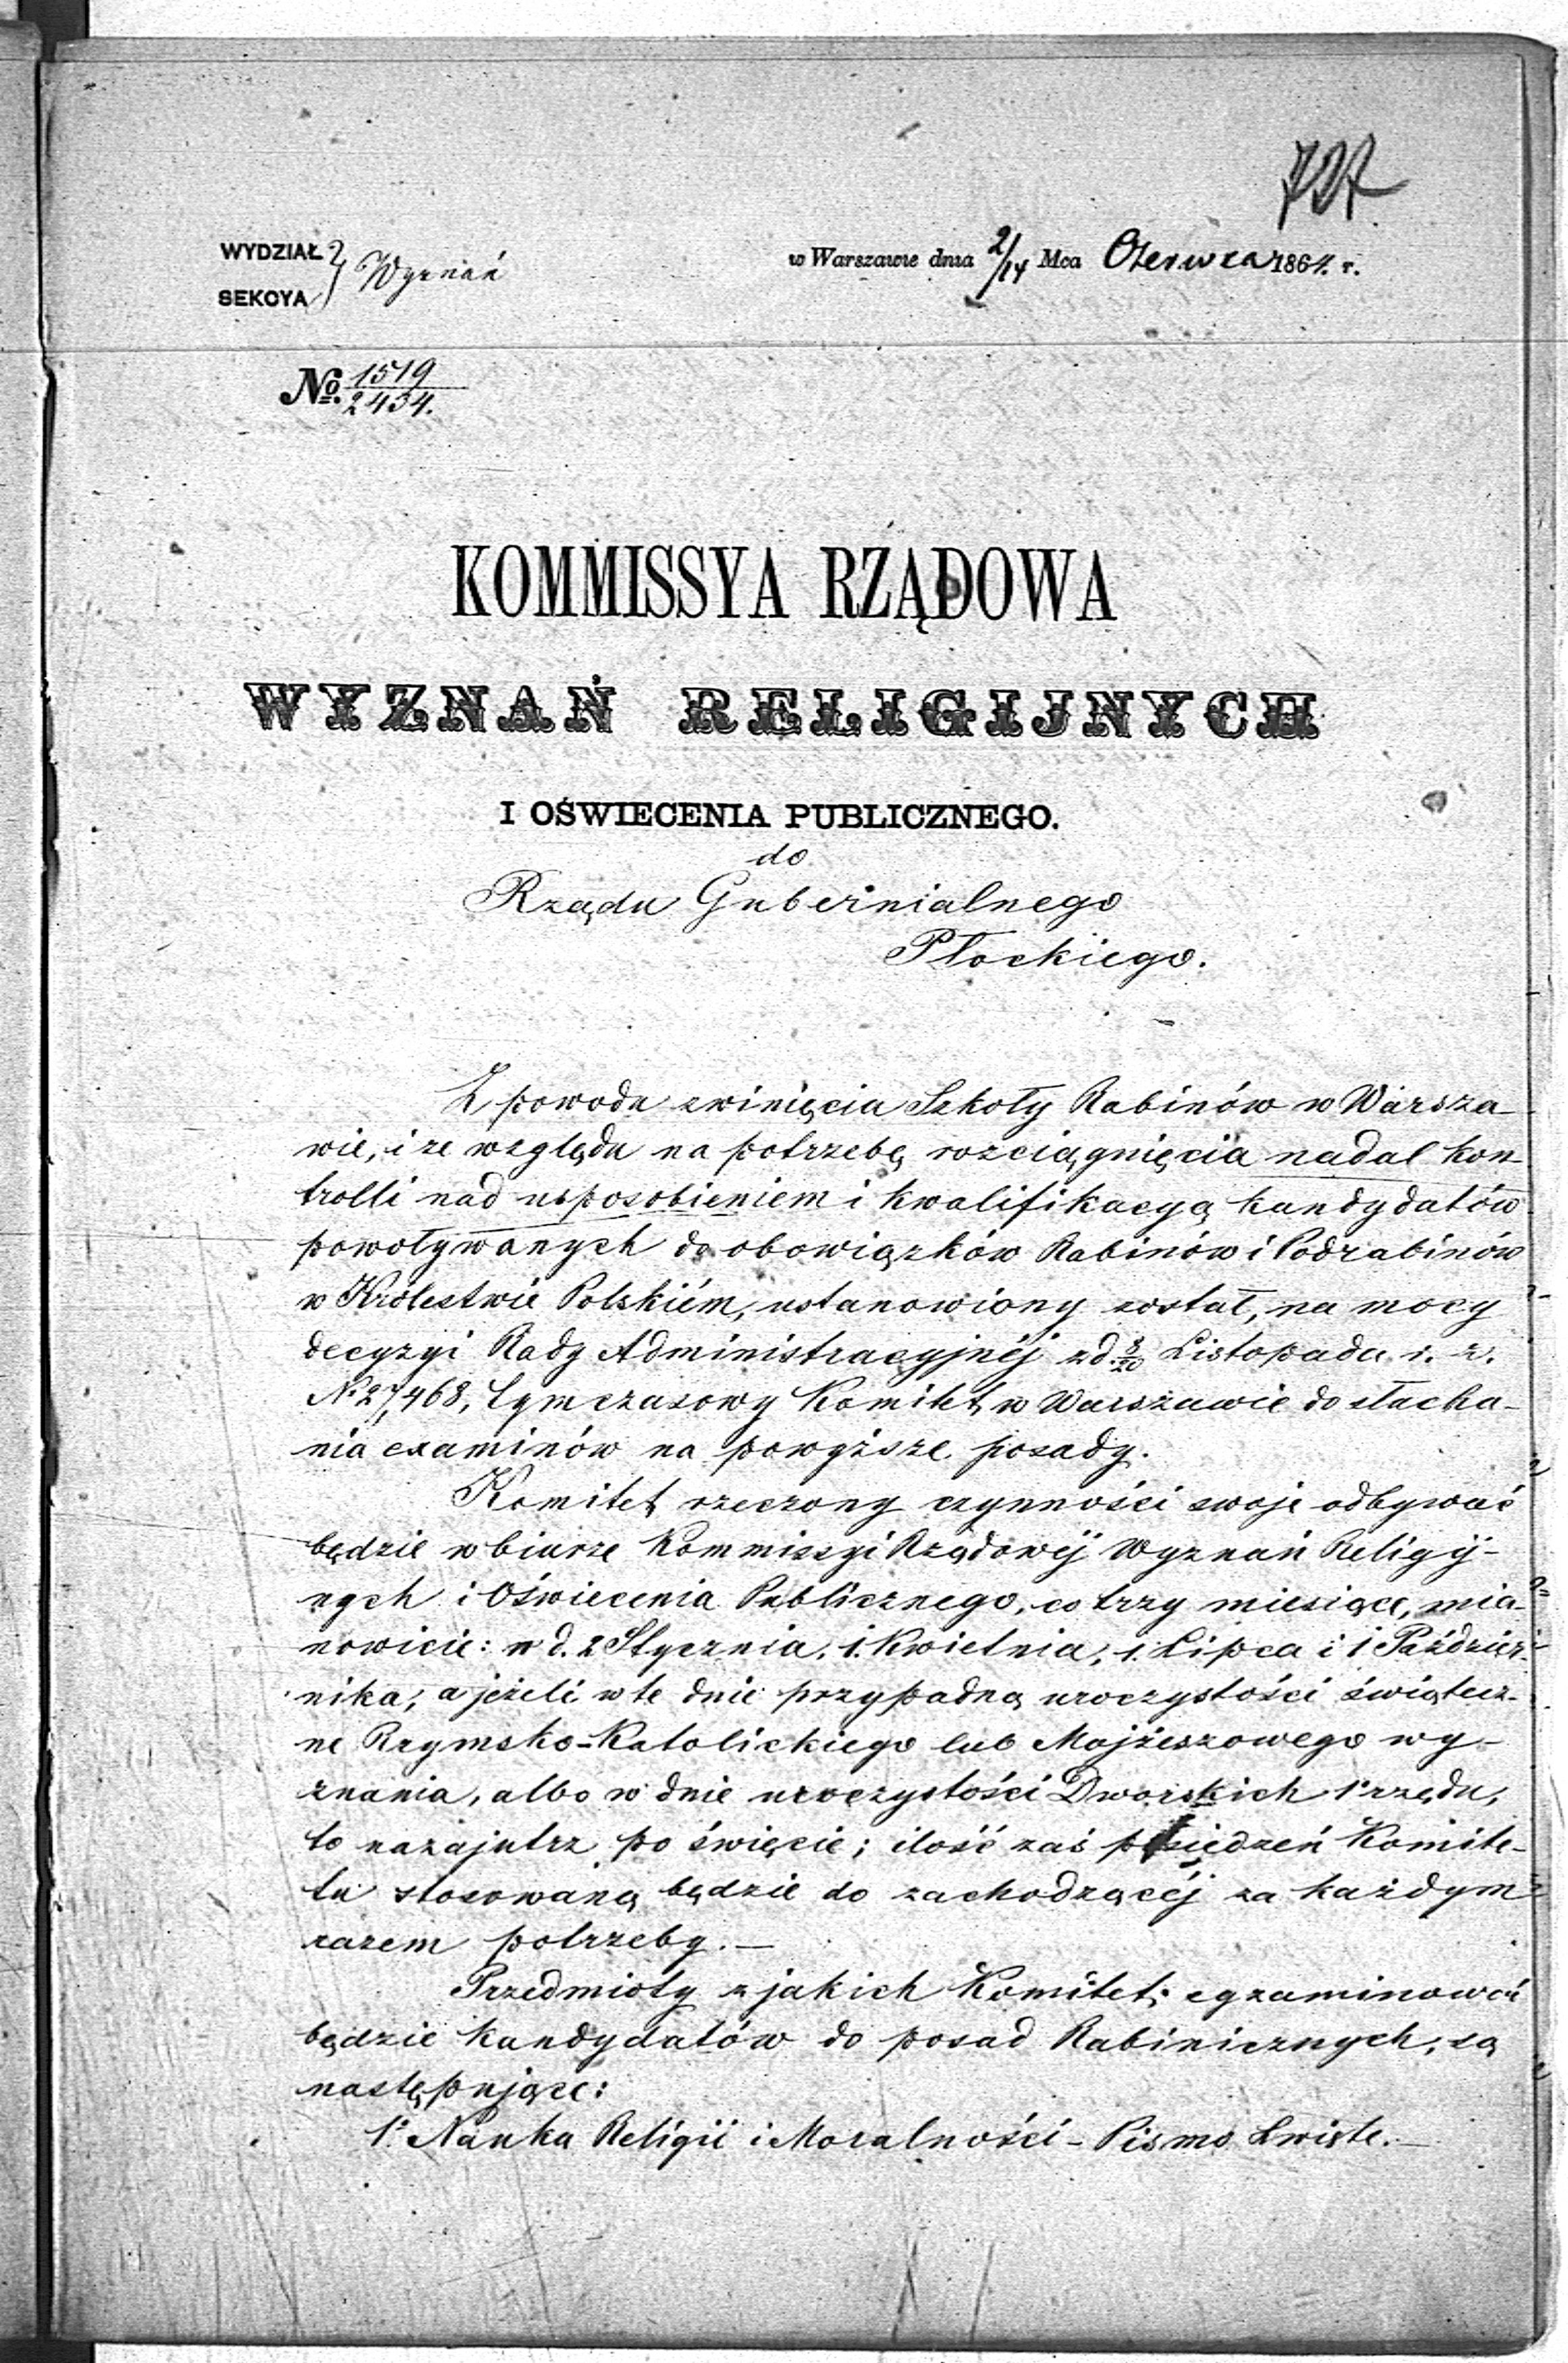 727
WYDZIAŁ } Wyznań
SEKCYA
w Warszawie dnia 2/14 Mca Czerwca 1864. r.
No. 1519/2434.
KOMMISSYA RZĄDOWA
WYZNAŃ RELIGIJNYCH
I OŚWIECENIA PUBLICZNEGO.
do
Rządu Gubernialnego
Płockiego.
Z powodu zwinięcia Szkoły Rabinów w Warsza-
wie, i ze względu na potrzebę rozciągnięcia nadal kon-
trolli nad usposobieniem i kwalifikacyą kandydatów
powoływanych do obowiązków Rabinów i Podrabinów
w Królestwie Polskiém, ustanowiony został, na mocy
decyzyi Rady Administracyjnéj z d. 8/20 Listopada r. z.
N. 27,468, tymczasowy Komitet w Warszawie do słucha-
nia examinów na powyższe posady.
Komitet rzeczony czynności swoje odbywać
będzie w biurze Kommissyi Rządowéj Wyznań Religij-
nych i Oświecenia Publicznego, co trzy miesiące, mia-
nowicie: w d. 2 Stycznia, 1. Kwietnia, 1. Lipca i 1 Paździer-
nika; a jeżeli w te dnie przypadną uroczystości świątecz-
ne Rzymsko-Katolickiego lub Mojżeszowego wy-
znania, albo w dnie uroczystości Dworskich 1º rzędu,
to nazajutrz po święcie; ilość zaś posiedzeń Komite-
tu stosowaną będzie do zachodzącéj za każdym
razem potrzeby. —
Przedmioty z jakich Komitet egzaminować
będzie kandydatów do posad Rabinicznych, są
następujące:
1º Nauka Religii i Moralności - Pismo Święte. —